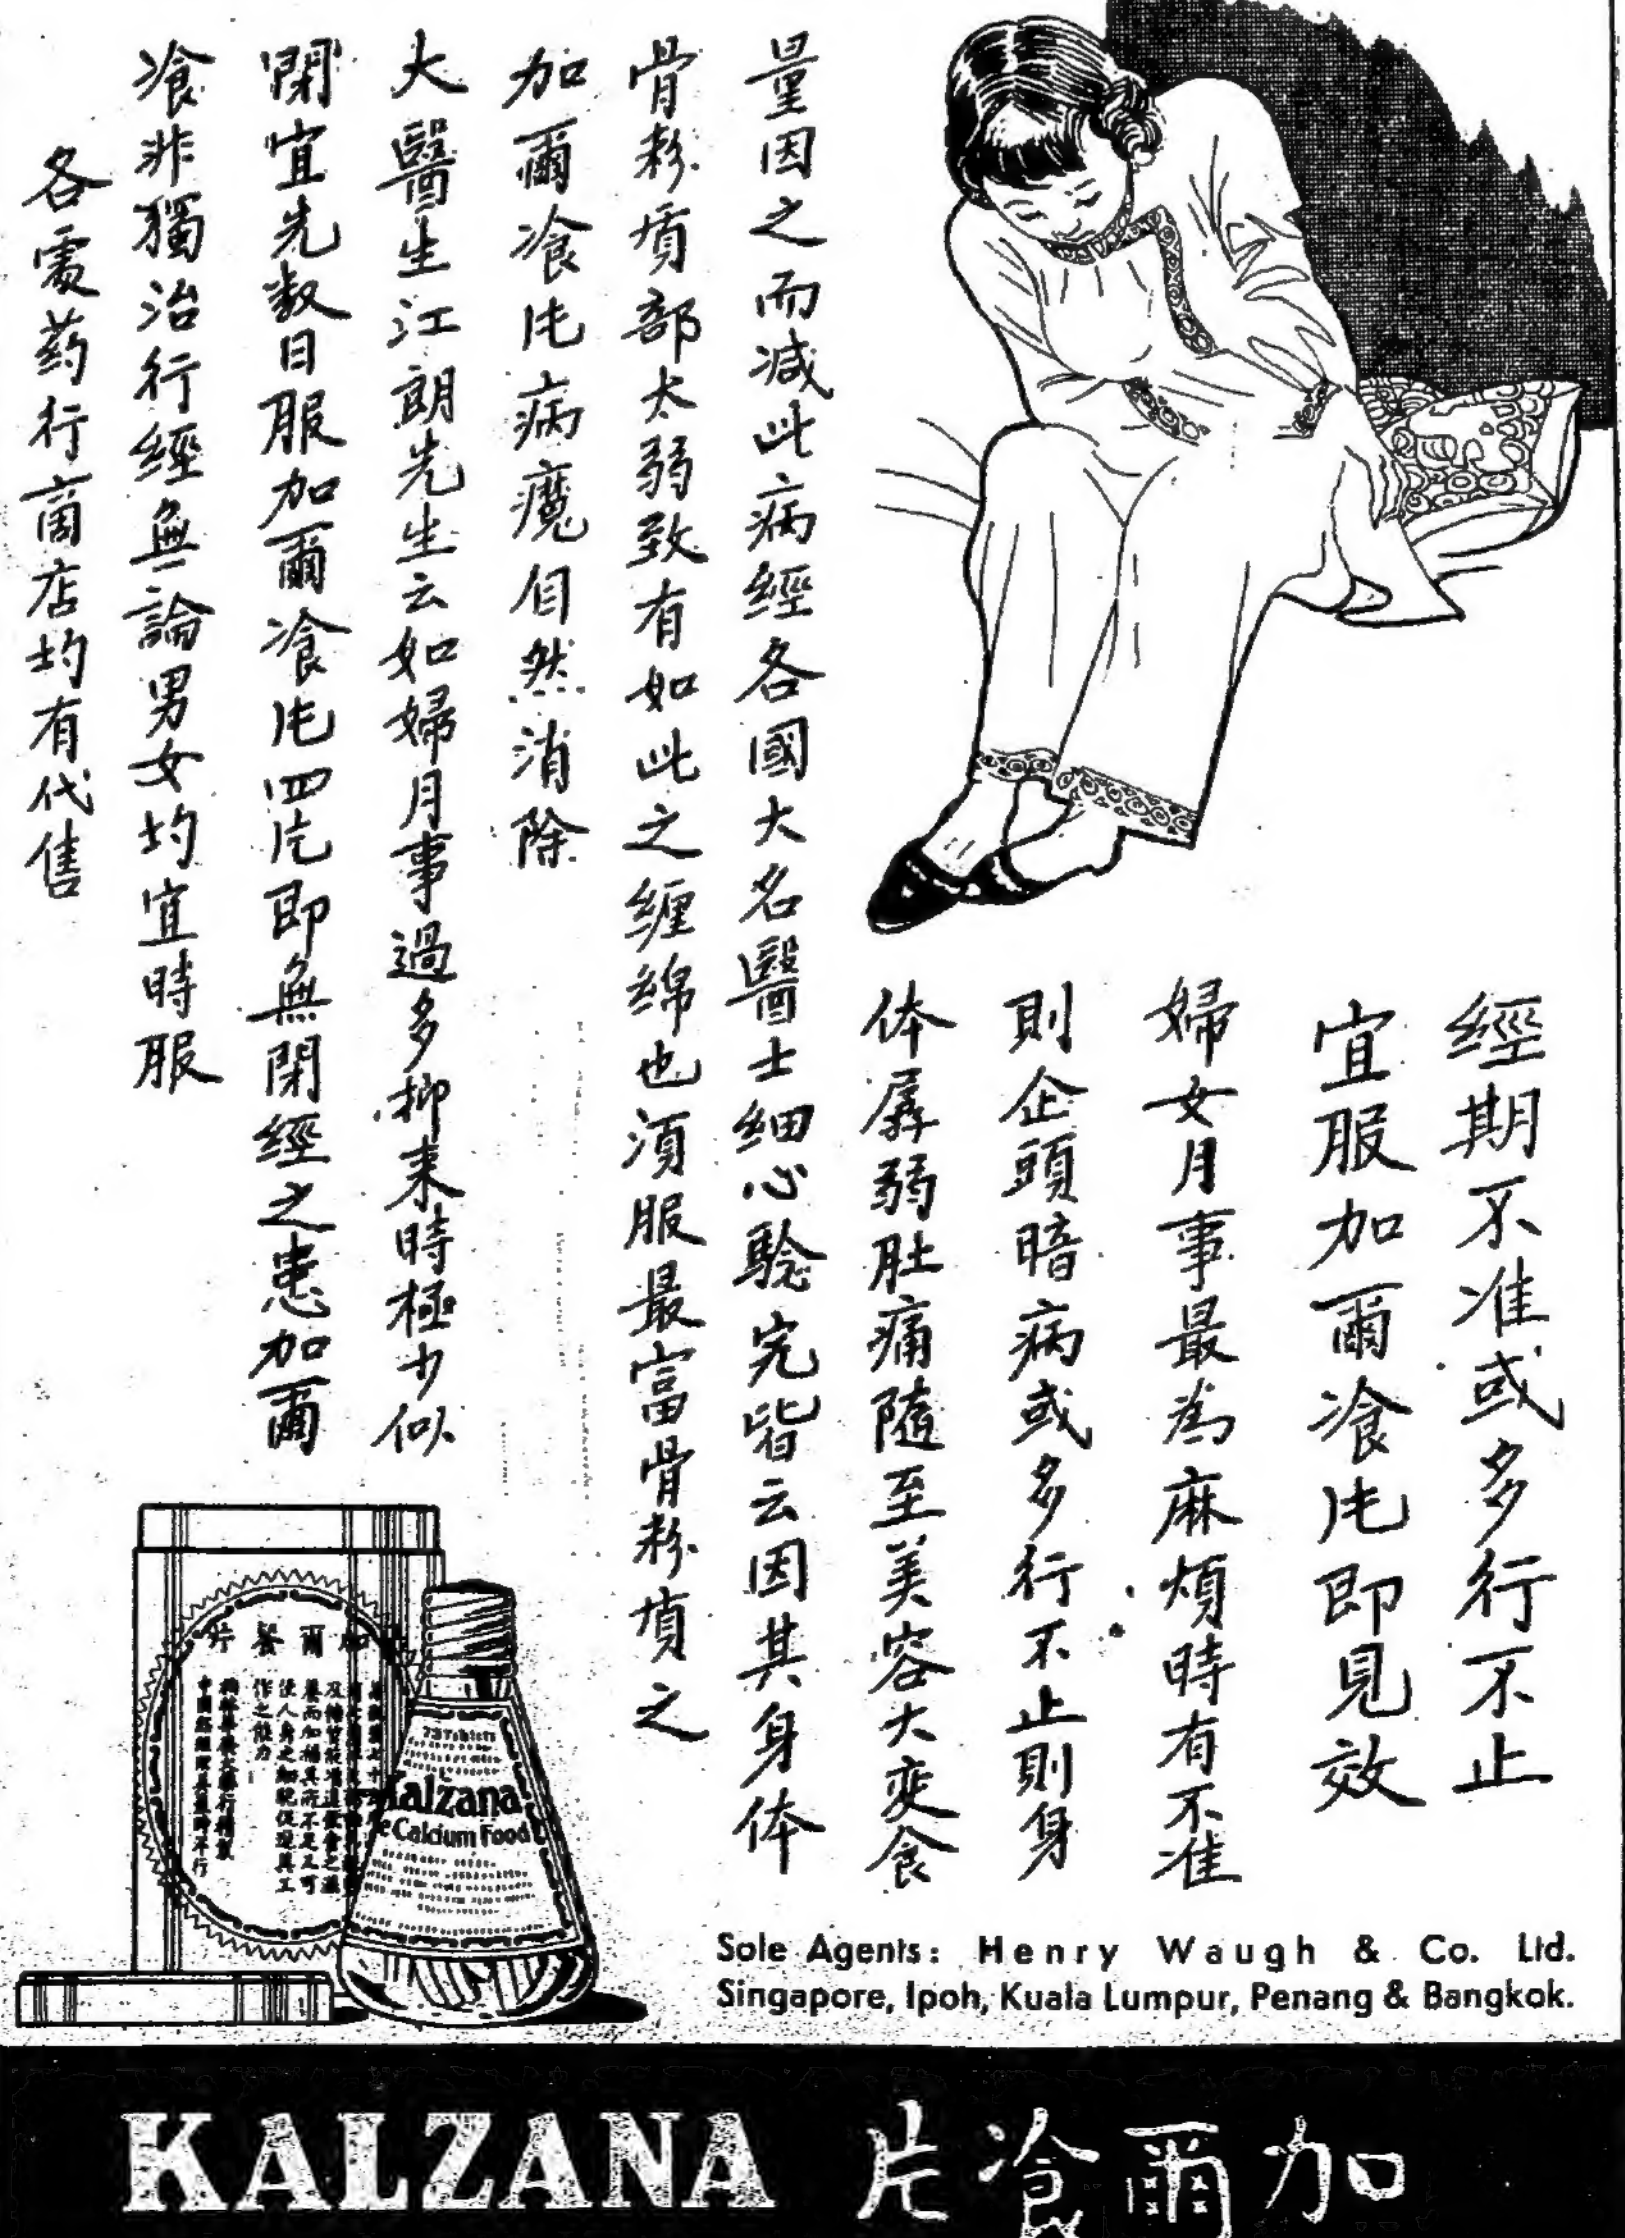 經期不准或多行不止
宜服加爾飡片即見效
婦女月事最為麻煩時有不准
則企頭暗病或多行不止則身
体孱弱肚痛隨至美容大变食
量因之而减此病經各國大名醫士細心騐究皆云因其身体
骨粉質部太弱致有如此之缠绵也須服最富骨粉質之
加爾飡片病魔自然消除
大醫生江朗先生云如婦月事過多抑来時極少似
閉宜先数日服加爾飡片四片即無閉經之患加爾
飡非獨治行經無論男女均宜時服
各處药行商店均有代售
片餐爾加
使人身之細胞促進其工
作之能力
Kalzana
Calcium Food
Sole Agents: Henry Waugh & Co. Ltd.
Singapore, Ipoh, Kuala Lumpur, Penang & Bangkok.
KALZANA 片飡爾加